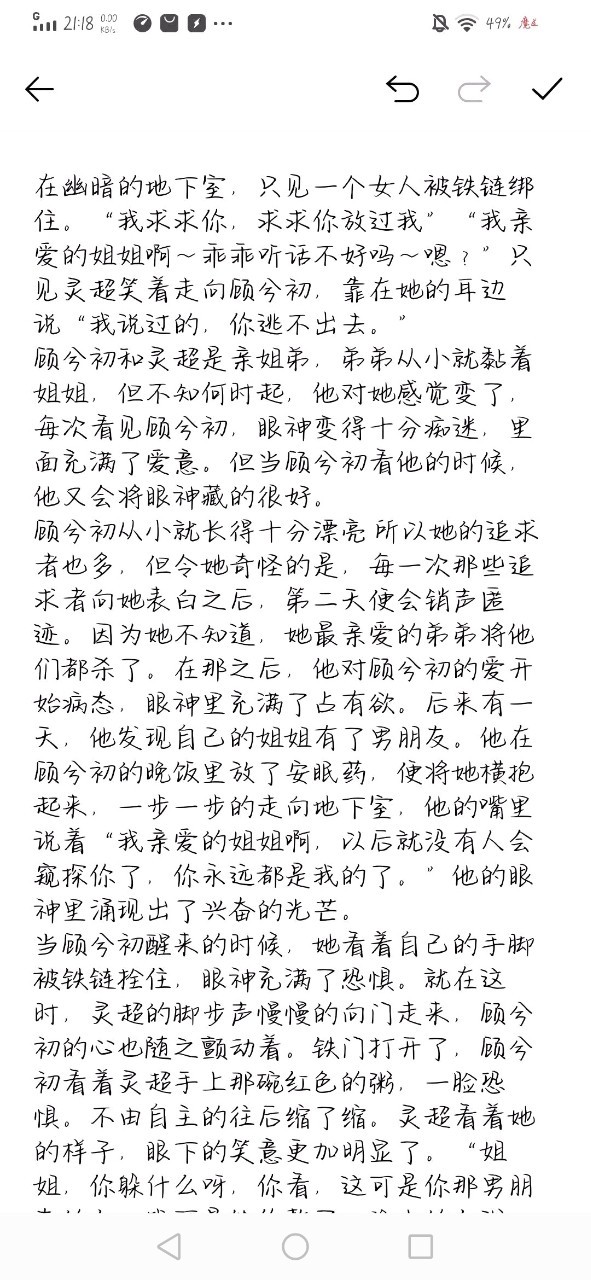 21:18 0.00 KB/s 49%
在幽暗的地下室，只见一个女人被铁链绑
住。“我求求你，求求你放过我”“我亲
爱的姐姐啊～乖乖听话不好吗～嗯？”只
见灵超笑着走向顾兮初，靠在她的耳边
说“我说过的，你逃不出去。”
顾兮初和灵超是亲姐弟，弟弟从小就黏着
姐姐，但不知何时起，他对她感觉变了，
每次看见顾兮初，眼神变得十分痴迷，里
面充满了爱意。但当顾兮初看他的时候，
他又会将眼神藏的很好。
顾兮初从小就长得十分漂亮 所以她的追求
者也多，但令她奇怪的是，每一次那些追
求者向她表白之后，第二天便会销声匿
迹。因为她不知道，她最亲爱的弟弟将他
们都杀了。在那之后，他对顾兮初的爱开
始病态，眼神里充满了占有欲。后来有一
天，他发现自己的姐姐有了男朋友。他在
顾兮初的晚饭里放了安眠药，便将她横抱
起来，一步一步的走向地下室，他的嘴里
说着“我亲爱的姐姐啊，以后就没有人会
窥探你了，你永远都是我的了。”他的眼
神里涌现出了兴奋的光芒。
当顾兮初醒来的时候，她看着自己的手脚
被铁链拴住，眼神充满了恐惧。就在这
时，灵超的脚步声慢慢的向门走来，顾兮
初的心也随之颤动着。铁门打开了，顾兮
初看着灵超手上那碗红色的粥，一脸恐
惧。不由自主的往后缩了缩。灵超看着她
的样子，眼下的笑意更加明显了。“姐
姐，你躲什么呀，你看，这可是你那男朋